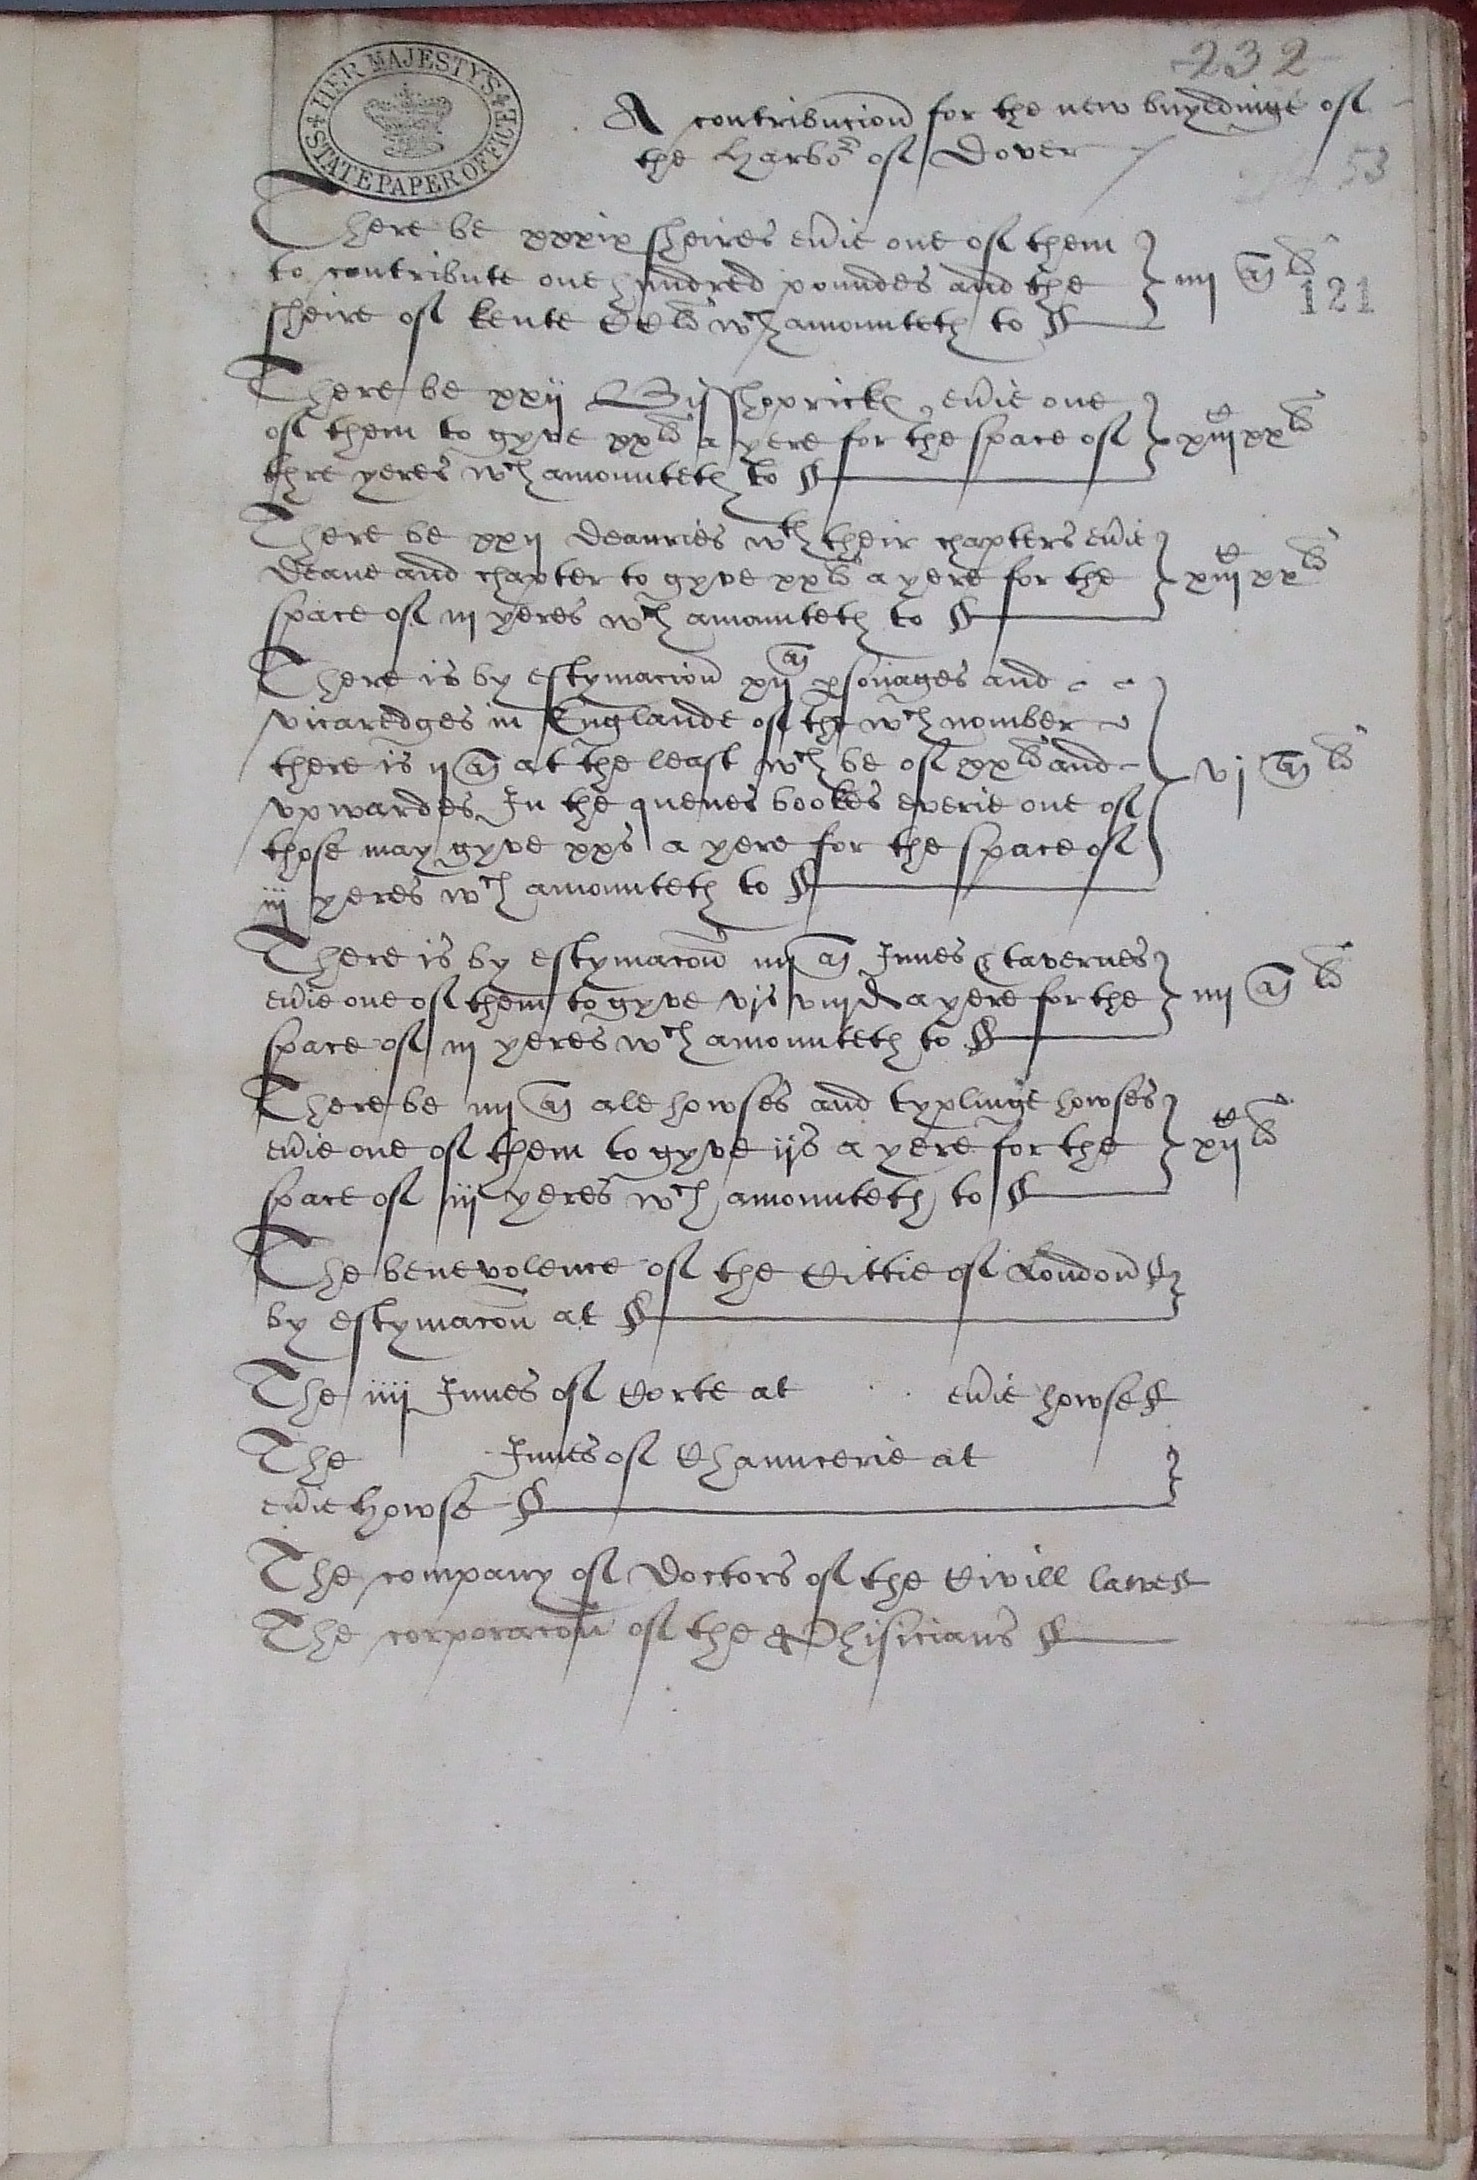 HER MAJESTY'S STATE PAPER OFFICE
232
A contribucion for the new buyldinge of
the Harbor of Dover
53
There be xxxix sheires eṽie one of them
to contribute one hundred poundes and the
sheire of kente CCli wch amounteth to
iiij M li
121
There be xxij Bisshoprick eṽie one
of them to gyve xxli a yere for the space of
thre yeres wch amounteth to
xiij C xxli
There be xxij deanries wth their chapters eṽie
deane and chapter to gyve xxli a yere for the
space of iij yeres wch amounteth to
xiij C xxli
There is by estymacion xij M psonages and
vicaredges in Englande of the wch nomber
there is ij M at the least wch be of xxli and
upwardes In the quenes bookes everie one of
those may gyve xxs a yere for the space of
iij yeres wch amounteth to
vj M li
There is by estymacon iiij M Innes & tavernes
eṽie one of them to gyve vjs viijd a yere for the
space of iij yeres wch amounteth to
iiij M li
There be iiij M ale howses and typlinge howses
eṽie one of them to gyve ijs a yere for the
space of iij yeres wch amounteth to
xij C li
The benevolence of the Cittie of London
by estymacon at
The iiij Innes of Corte at eṽie howse
The Innes of Chauncerie at
eṽie howse
The company of doctors of the Civill lawe
The corporacon of the Phisicians